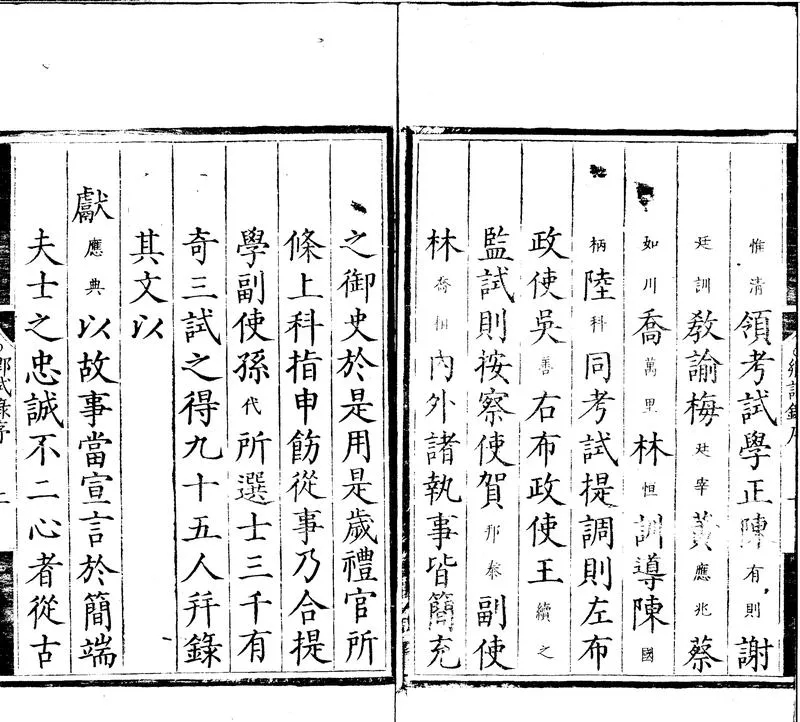 惟清領考試學正陳有則謝
廷訓教諭梅廷宰黃應兆蔡
如川喬萬里林恒訓導陳國
柄陸科同考試提調則左布
政使吳善右布政使王續之
監試則按察使賀邦泰副使
林喬相內外諸執事皆簡充
之御史於是用是歲禮官所
條上科指申飭從事乃合提
學副使孫代所選士三千有
奇三試之得九十五人并錄
其文以
獻應典以故事當宣言於簡端
夫士之忠誠不二心者從古
鄉試錄序
鄉試錄序